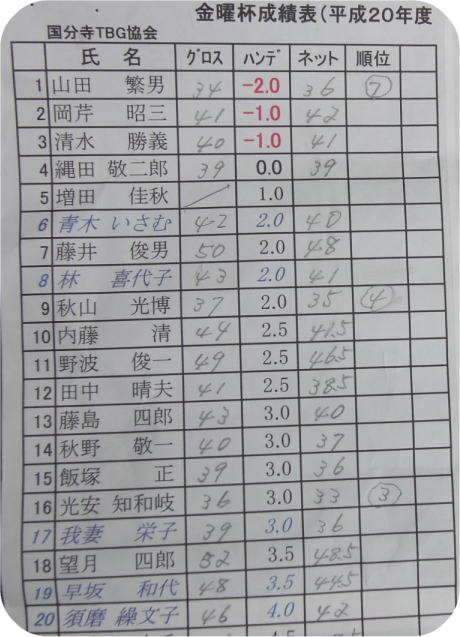 金曜杯成績表(平成20年度
国分寺TBG協会
氏 名 グロス ハンデ ネット 順位
1 山田 繁男 34 -2.0 36 ⑦
2 岡芹 昭三 41 -1.0 42
3 清水 勝義 40 -1.0 41
4 縄田 敬二郎 39 0.0 39
5 増田 佳秋 1.0
6 青木 いさむ 42 2.0 40
7 藤井 俊男 50 2.0 48
8 林 喜代子 43 2.0 41
9 秋山 光博 37 2.0 35 ④
10 内藤 清 44 2.5 41.5
11 野波 俊一 49 2.5 46.5
12 田中 晴夫 41 2.5 38.5
13 藤島 四郎 43 3.0 40
14 秋野 敬一 40 3.0 37
15 飯塚 正 39 3.0 36
16 光安 知和岐 36 3.0 33 ③
17 我妻 栄子 39 3.0 36
18 望月 四郎 52 3.5 48.5
19 早坂 和代 48 3.5 44.5
20 須磨 繰文子 46 4.0 42